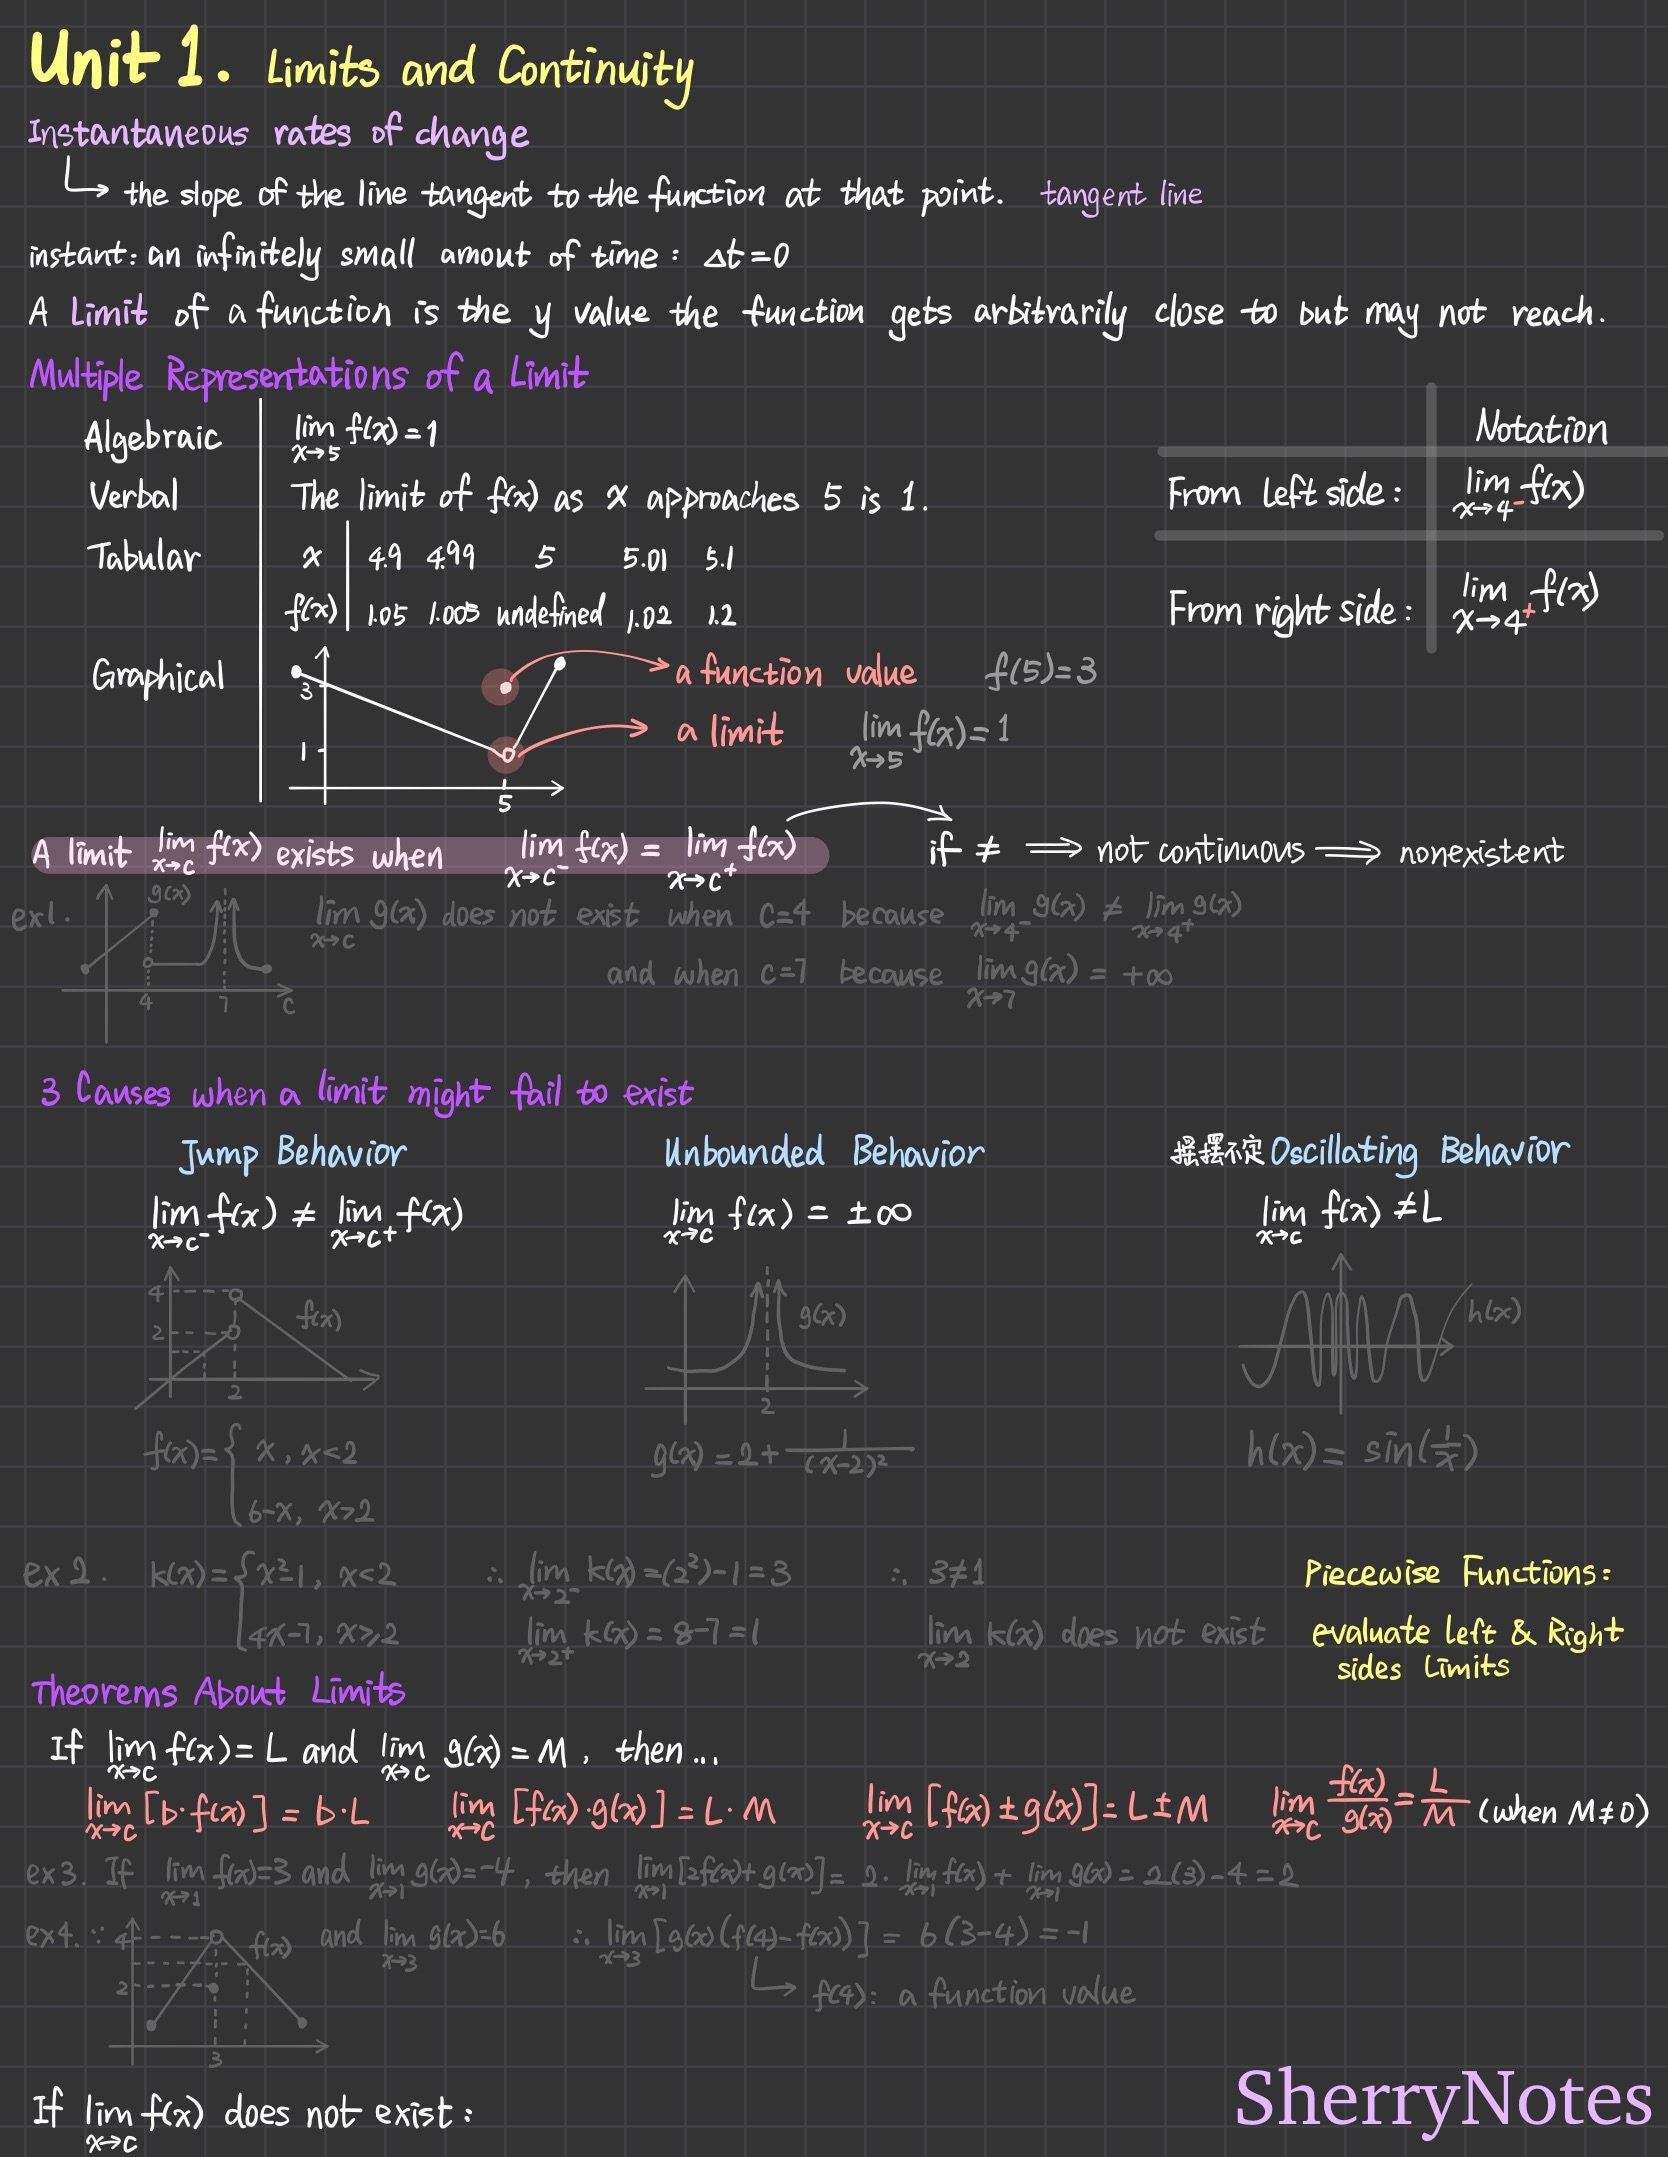 Unit 1. Limits and Continuity
Instantaneous rates of change
↳ the slope of the line tangent to the function at that point. tangent line
instant: an infinitely small amout of time: Δt=0
A Limit of a function is the y value the function gets arbitrarily close to but may not reach.
Multiple Representations of a Limit
Algebraic lim x→5 f(x)=1
Verbal The limit of f(x) as x approaches 5 is 1.
Tabular x 4.9 4.99 5 5.01 5.1
f(x) 1.05 1.005 undefined 1.02 1.2
Graphical
3
1
5
a function value f(5)=3
a limit lim x→5 f(x)=1
Notation
From left side: lim x→4⁻ f(x)
From right side: lim x→4⁺ f(x)
A limit lim x→c f(x) exists when lim x→c⁻ f(x) = lim x→c⁺ f(x) → if ≠ ⟹ not continuous ⟹ nonexistent
ex1.
g(x)
4 7 c
lim x→c g(x) does not exist when c=4 because lim x→4⁻ g(x) ≠ lim x→4⁺ g(x)
and when c=7 because lim x→7 g(x) = +∞
3 Causes when a limit might fail to exist
Jump Behavior
lim x→c⁻ f(x) ≠ lim x→c⁺ f(x)
4
2
2
f(x)
f(x)= { x, x<2
6-x, x>2
Unbounded Behavior
lim x→c f(x) = ±∞
g(x)
2
g(x) = 2+ 1/(x-2)²
摇摆不定 Oscillating Behavior
lim x→c f(x) ≠L
h(x)
h(x) = sin(1/x)
ex2. k(x)= { x²-1, x<2 ∴ lim x→2⁻ k(x)=(2²)-1=3 ∴ 3≠1
4x-7, x≥2 lim x→2⁺ k(x) = 8-7=1 lim x→2 k(x) does not exist
Piecewise Functions:
evaluate Left & Right
sides Limits
Theorems About Limits
If lim x→c f(x)=L and lim x→c g(x)=M, then...
lim x→c [b·f(x)] = b·L lim x→c [f(x)·g(x)] = L·M lim x→c [f(x)±g(x)]=L±M lim x→c f(x)/g(x) = L/M (when M≠0)
ex3. If lim x→1 f(x)=3 and lim x→1 g(x)=-4, then lim x→1 [2f(x)+g(x)]= 2·lim x→1 f(x) + lim x→1 g(x) = 2(3)-4=2
ex4. ∵
4
2
3
f(x)
and lim x→3 g(x)=6 ∴ lim x→3 [g(x)(f(4)-f(x))] = 6(3-4)=-1
↳ f(4): a function value
If lim x→c f(x) does not exist:
SherryNotes